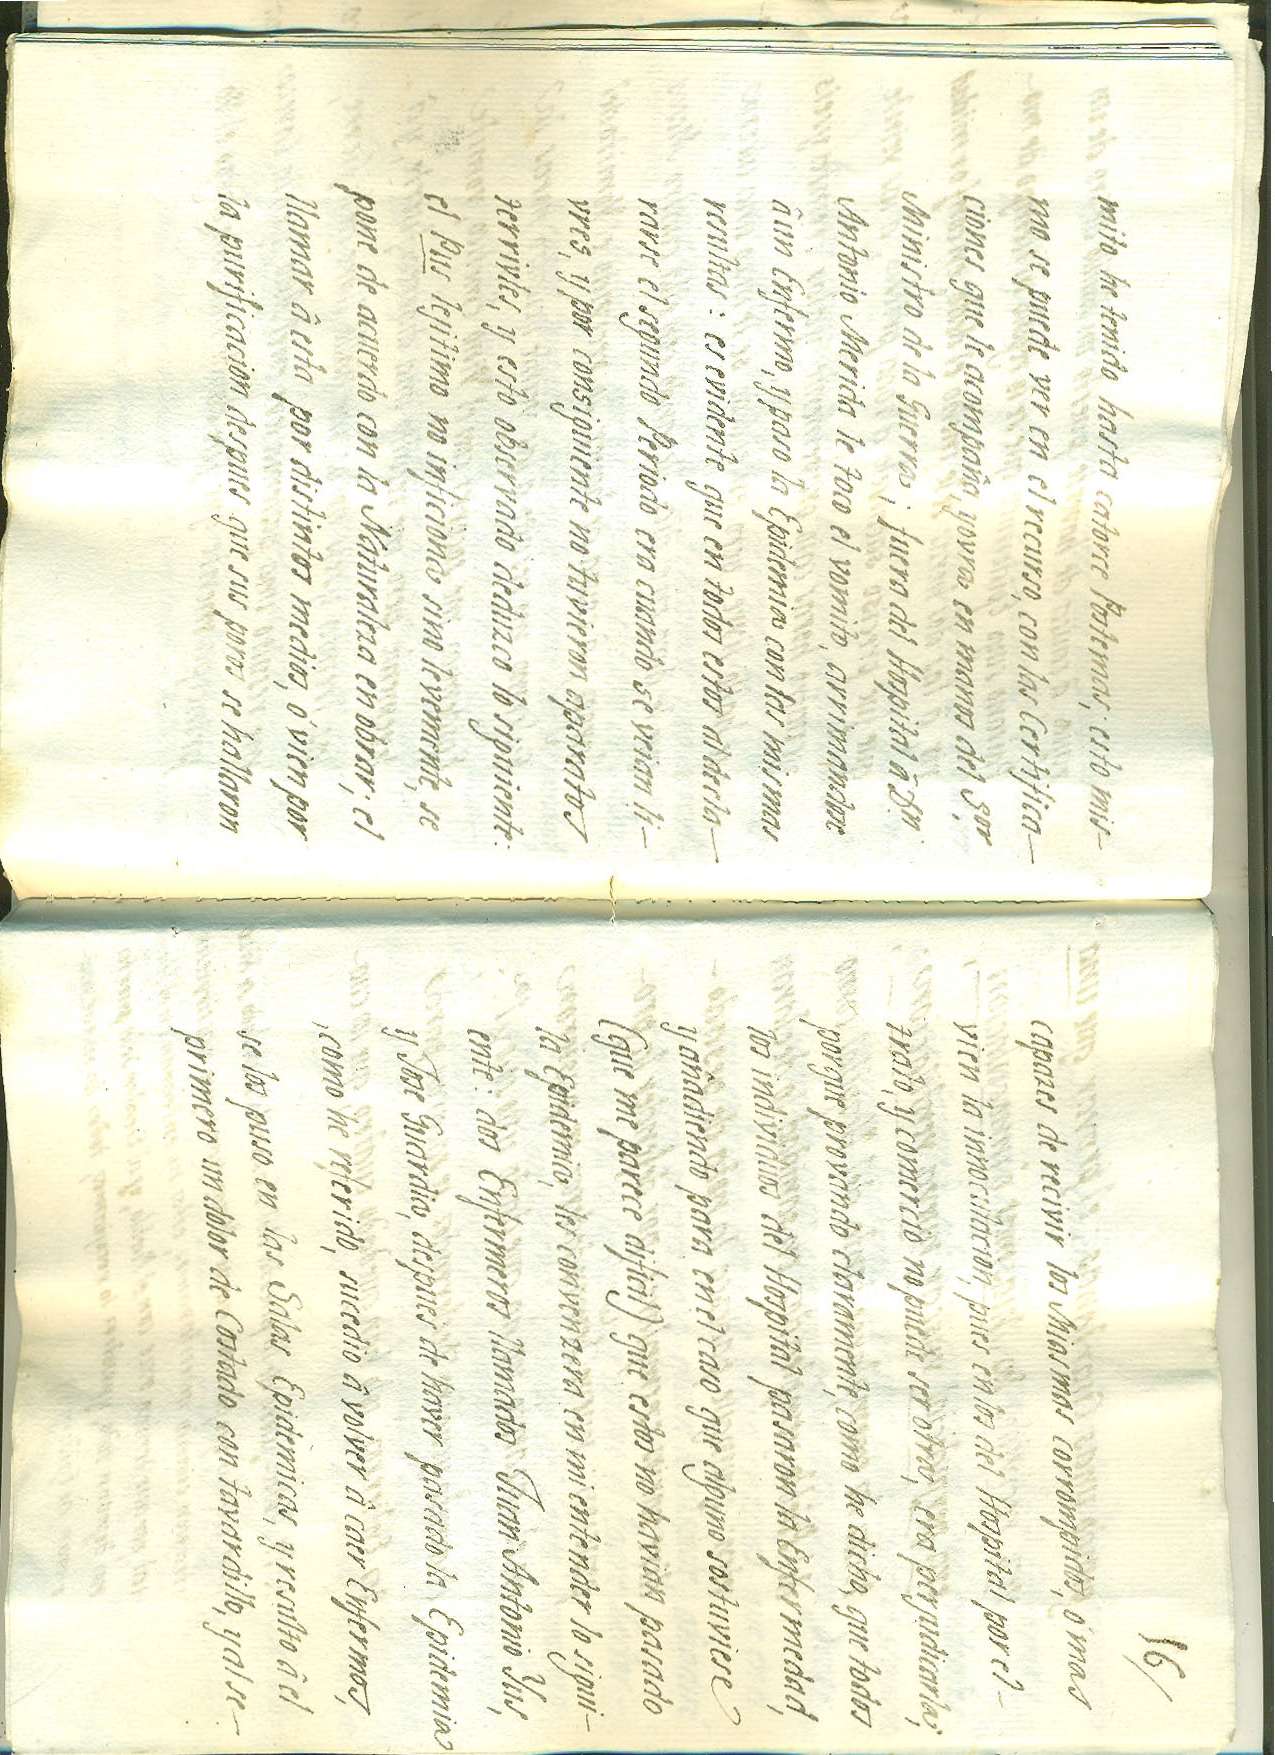 mito he tenido hasta catorce Postemas; esto mis-
mo se puede ver en el recurso, con las Certifica-
ciones que le acompaña, y ovra en manos del Sor
Ministro de la Guerra; fuera del Hospital â Dn
Antonio Merida le toco el vomito, arrimandose
âun Enfermo, y paso la Epidemia con las mismas
resultas: es evidente que en todos estos al decla-
rarse el segundo Periodo era cuando se veian li-
vres, y por consiguiente no tuvieron aparatos
terrivles, y esto observado deduzco lo siguiente:
el Pus legitimo no inficiona sino levemente, se
pone de acuerdo con la Naturaleza en obrar; el
llamar â esta por distintos medios, ó vien por
la purificacion despues que sus poros se hallaron
16/
capazes de recivir los Miasmas corrompidos, ó mas
vien la innoculacion, pues en los del Hospital por el
trato, y comercio no puede ser otra, era perjudicarlos,
porque provando claramente, como he dicho, que todos
los individuos del Hospital pasaron la Enfermedad,
y añadiendo para en el caso que alguno sostuviere
(que me parece dificil) que estos no havian pasado
la Epidemia, les convenzera en mi entender lo sigui-
ente: dos Enfermeros llamados Juan Antonio Rus,
y Jose Guardia, despues de haver pasado la Epidemia
, como he referido, sucedio â volver â caer Enfermos,
se los puso en las Salas Epidemicas, y resultó â el
primero un dolor de Costado con tavardillo, y al se-